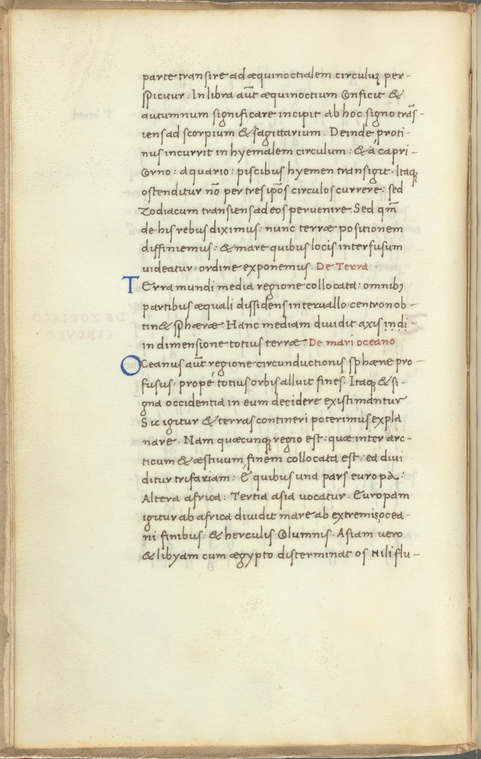 parte transire ad æquinoctialem circulũ per-
spicitur. In libra aũt æquinoctium conficit &
autumnum significare incipit ab hoc signo trãs-
iens ad scorpium & sagittarium. Deinde proti-
nus incurrit in hyemalem circulum: & a capri-
corno: aquario: piscibus hyemen transigit. Itaq;
ostenditur nõ per tres ipõs circulos currere: sed
zodiacum transiens ad eos pervenire. Sed qm̃
de his rebus diximus: nunc terræ positionem
diffiniemus: & mare quibus locis interfusum
uideatur, ordine exponemus. De Terra
Terra mundi media regione collocata: omnibꝫ
partibus æquali dissidens interuallo centron ob-
tinet sphæræ. Hanc mediam diuidit axis indi-
in dimensione totius terræ. De mari oceano
Oceanus aũt regione circunductionis sphæræ pro-
fusus, prope totius orbis alluit fines. Itaq; & si-
gna occidentia in eum decidere existimantur
Sic igitur & terras contineri poterimus expla
nare. Nam quæcunq; regio est: quæ inter arc-
ticum & æstiuum finem collocata est. ea diui
ditur trifariam: E quibus una pars europa:
Altera africa: Tertia asia vocatur. Europam
igitur ab africa diuidit mare ab extremis ocea-
ni finibus: & herculis columnis. Asiam uero
& libyam cum ægypto disterminat os Nili flu-
DE ZODIACO
CIRCVLO